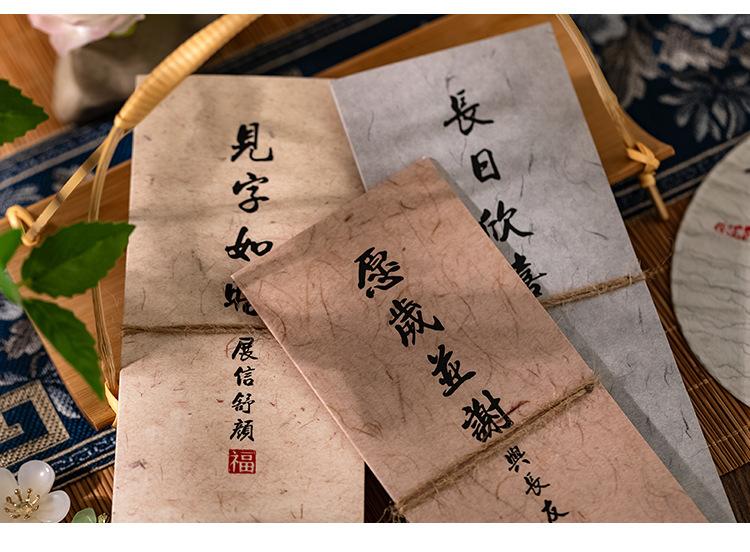 見字如晤
展信舒顏
福
長日欣喜
愿歲並謝
與長友